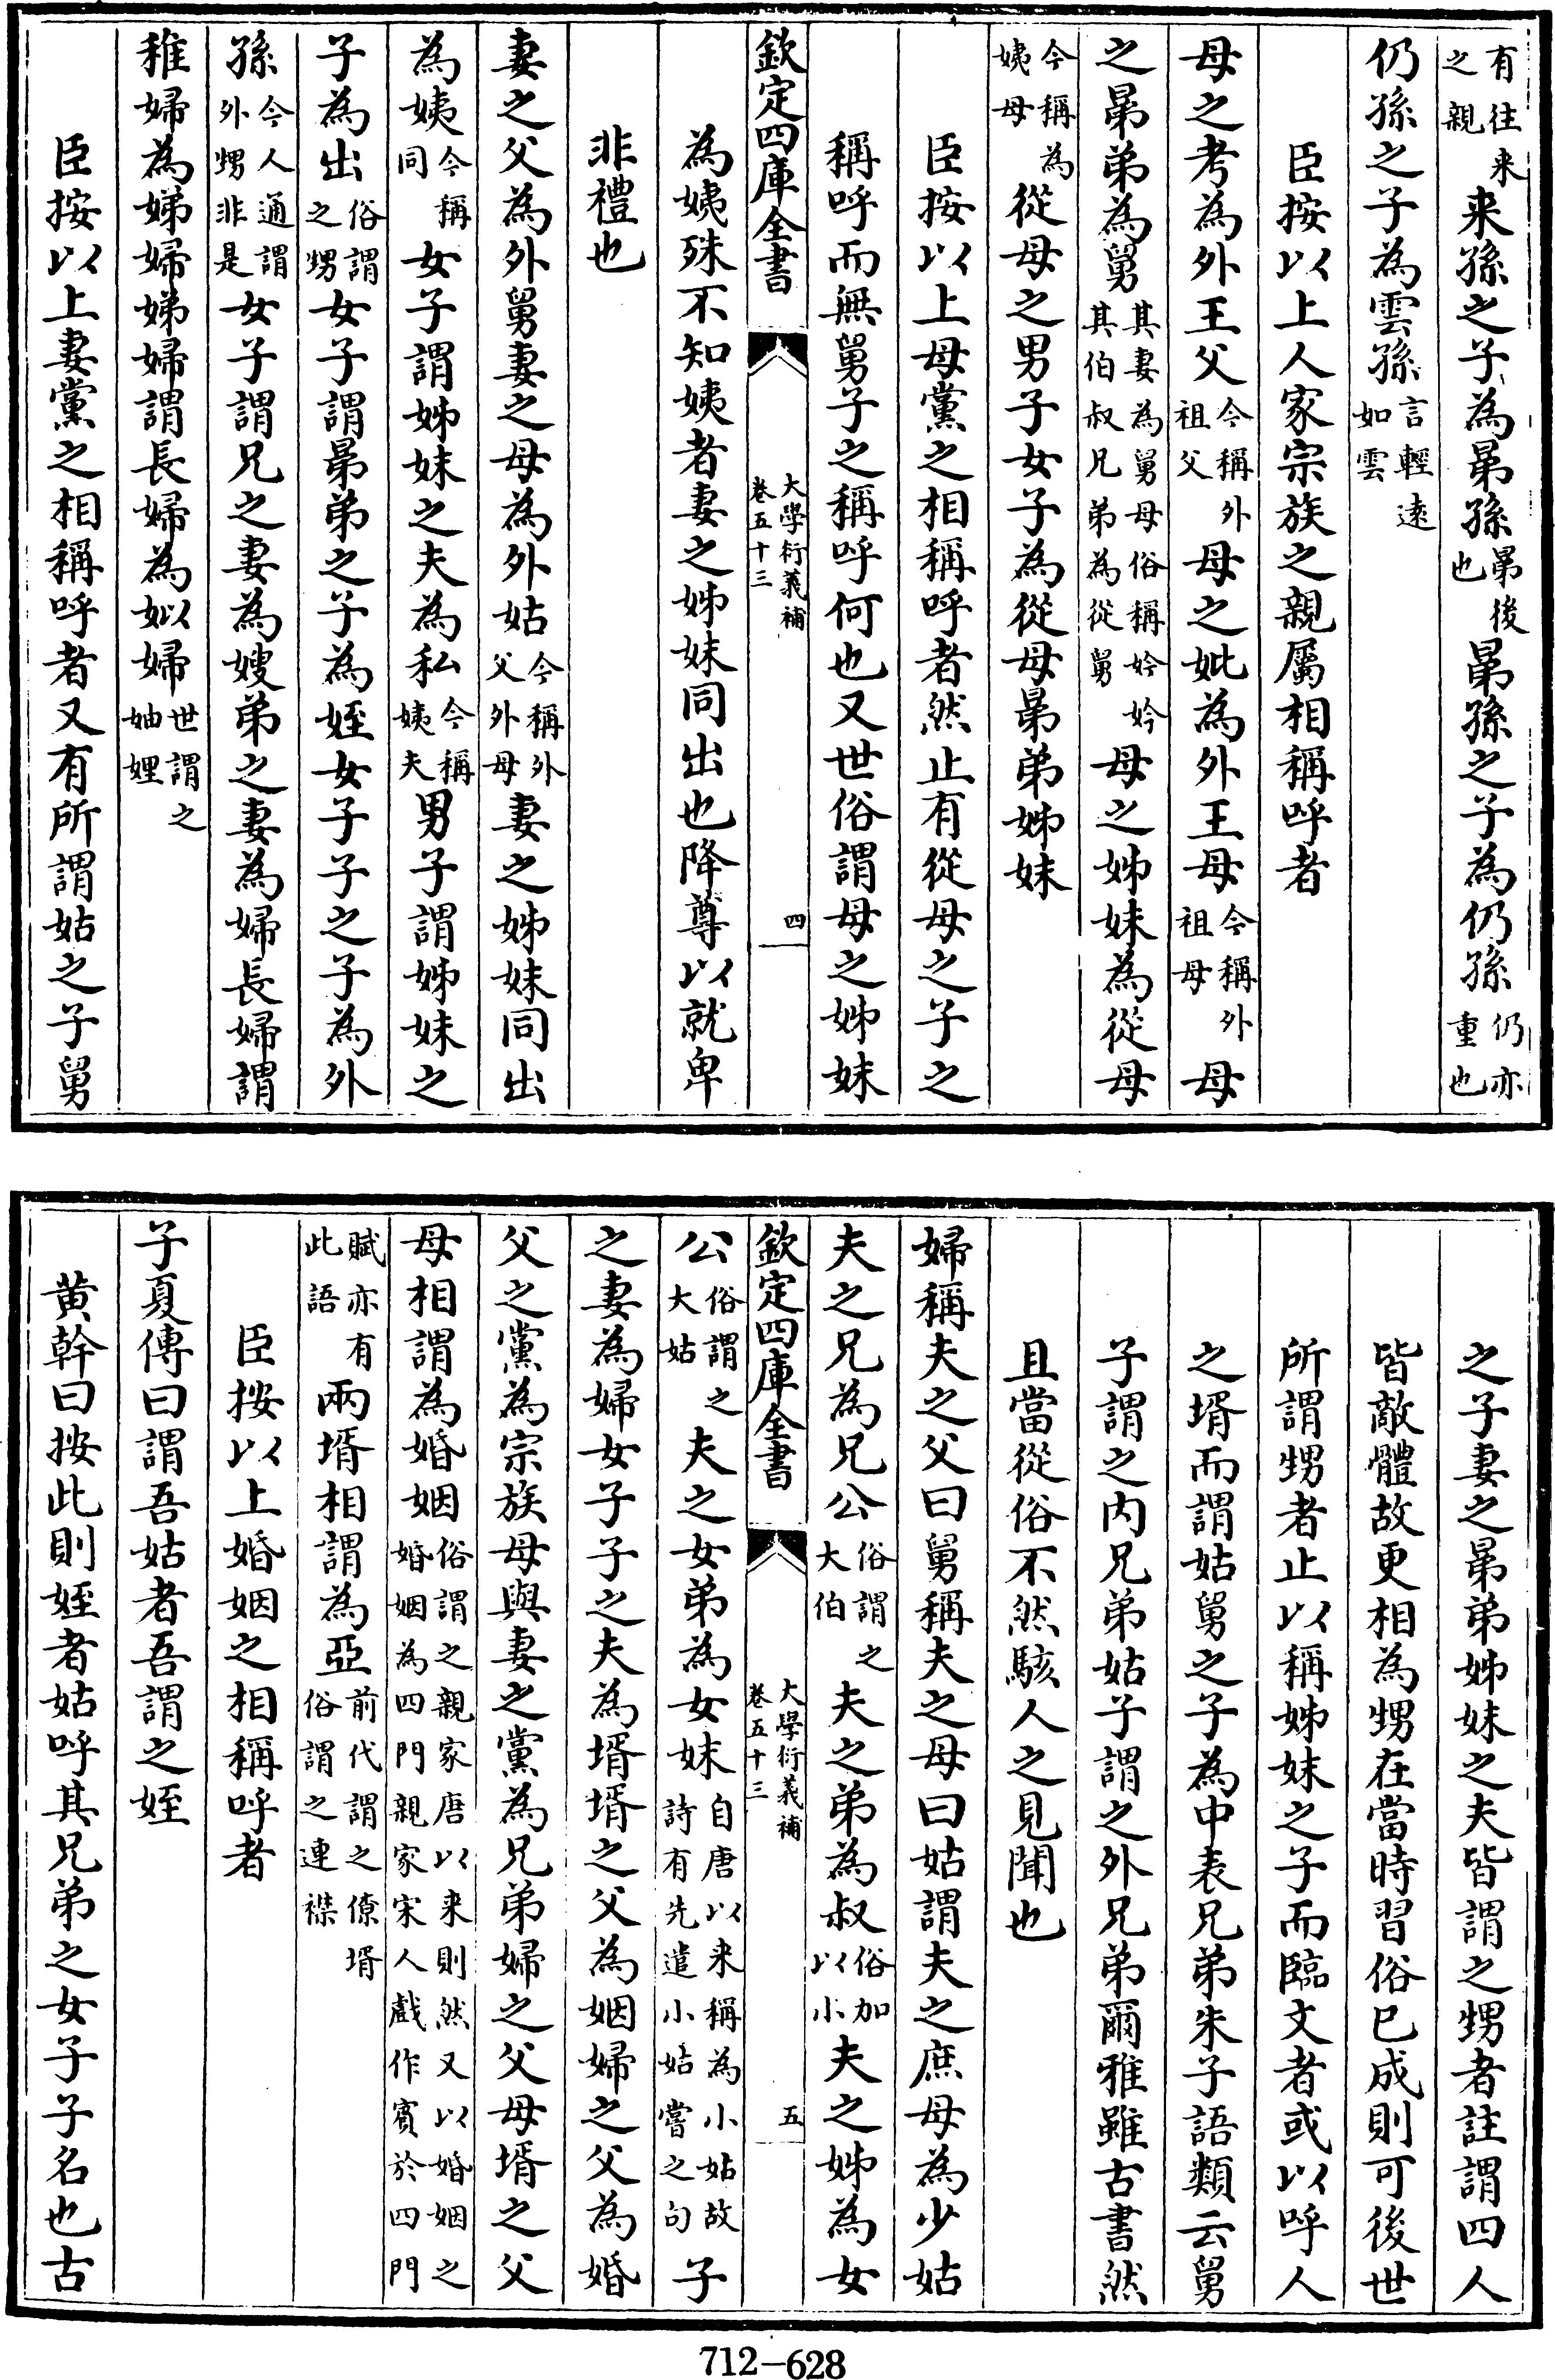 有往来之親来孫之子為晜孫晜後也晜孫之子為仍孫仍亦重也
仍孫之子為雲孫言輕逺如雲
臣按以上人家宗族之親屬相稱呼者
母之考為外王父今稱外祖父母之妣為外王母今稱外祖母母
之晜弟為舅其妻為舅母俗稱妗妗其伯叔兄弟為從舅母之姊妹為從母
今稱為姨母從母之男子女子為從母晜弟姊妹
臣按以上母黨之相稱呼者然止有從母之子之
稱呼而無舅子之稱呼何也又世俗謂母之姊妹
欽定四庫全書
大學衍義補
卷五十三
四
為姨殊不知姨者妻之姊妹同出也降尊以就卑
非禮也
妻之父為外舅妻之母為外姑今稱外父外母妻之姊妹同出
為姨今稱同女子謂姊妹之夫為私今稱姨夫男子謂姊妹之
子為出俗謂之甥女子謂晜弟之子為姪女子子之子為外
孫今人通謂外甥非是女子謂兄之妻為嫂弟之妻為婦長婦謂
稚婦為娣婦娣婦謂長婦為姒婦世謂之妯娌
臣按以上妻黨之相稱呼者又有所謂姑之子舅
之子妻之晜弟姊妹之夫皆謂之甥者註謂四人
皆敵體故更相為甥在當時習俗已成則可後世
所謂甥者止以稱姊妹之子而臨文者或以呼人
之壻而謂姑舅之子為中表兄弟朱子語類云舅
子謂之内兄弟姑子謂之外兄弟爾雅雖古書然
且當從俗不然駭人之見聞也
婦稱夫之父曰舅稱夫之母曰姑謂夫之庶母為少姑
夫之兄為兄公俗謂之大伯夫之弟為叔俗加以小夫之姊為女
欽定四庫全書
大學衍義補
卷五十三
五
公俗謂之大姑夫之女弟為女妹自唐以来稱為小姑故詩有先遣小姑嘗之句子
之妻為婦女子子之夫為壻壻之父為姻婦之父為婚
父之黨為宗族母與妻之黨為兄弟婦之父母壻之父
母相謂為婚姻俗謂之親家唐以来則然又以婚姻之婚姻為四門親家宋人戲作賓於四門
賦亦有此語兩壻相謂為亞前代謂之僚壻俗謂之連襟
臣按以上婚姻之相稱呼者
子夏傳曰謂吾姑者吾謂之姪
黄幹曰按此則姪者姑呼其兄弟之女子子名也古
712—628